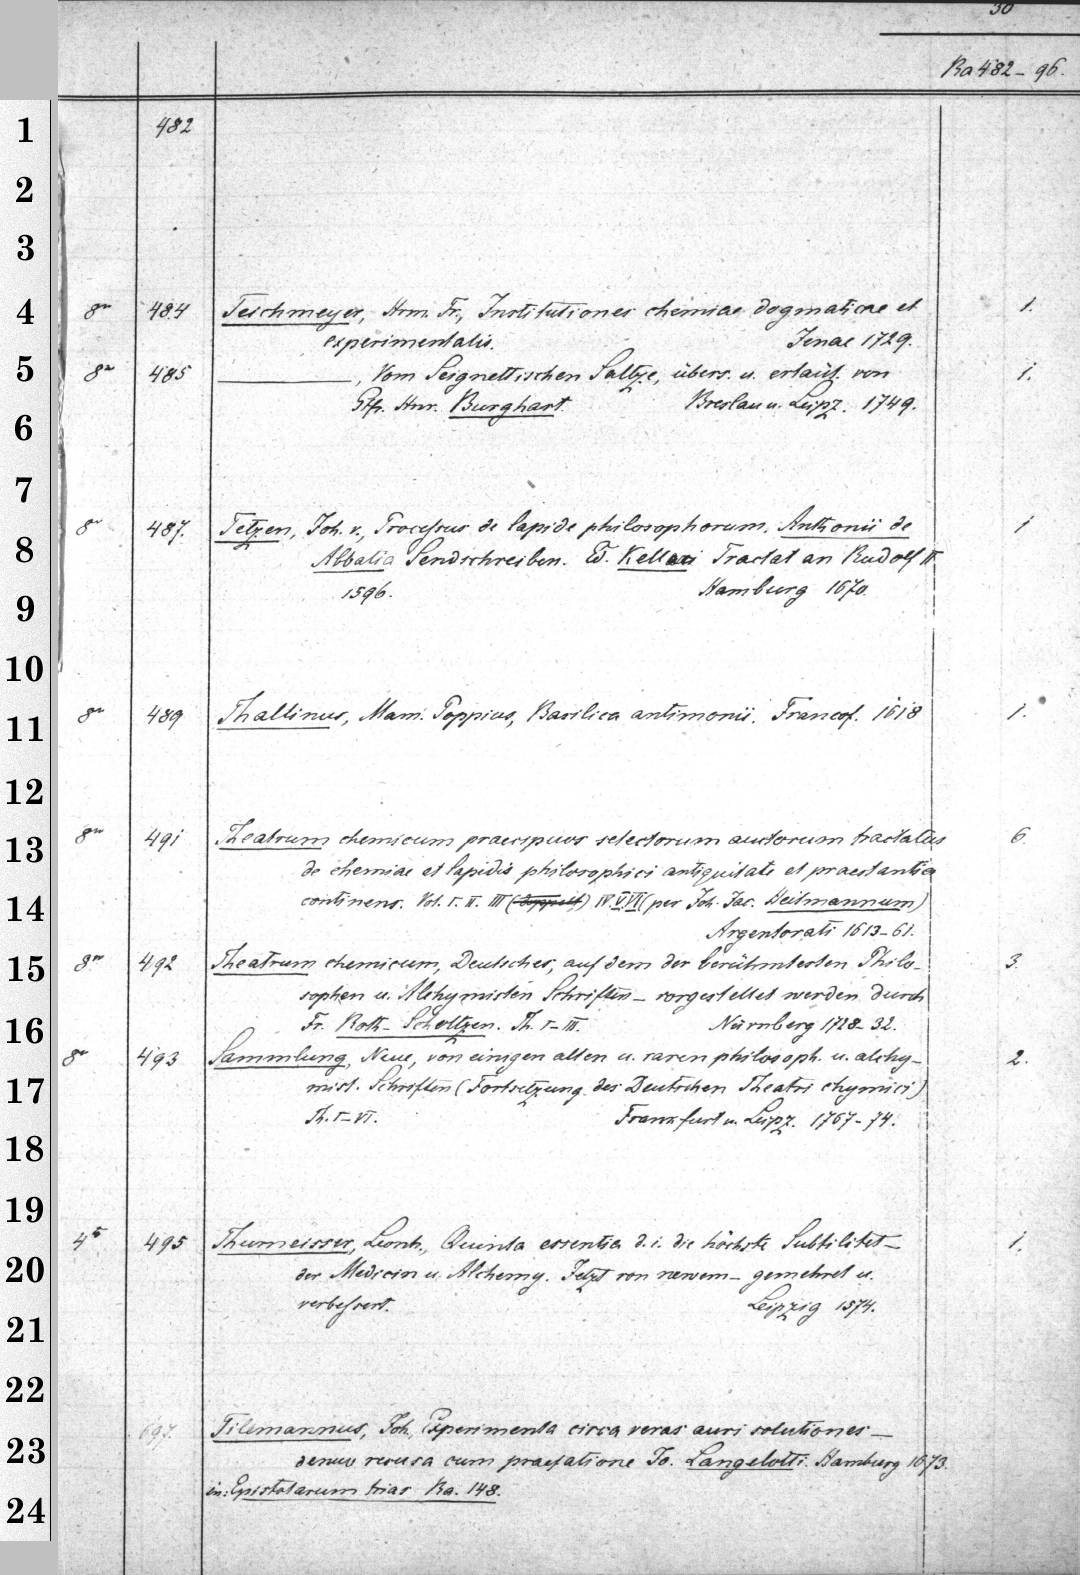 30
Ra 482-96.
1
482
2
3
4
8vo 484 Teichmeyer, Hrm. Fr., Institutiones chemiae dogmaticae et 1.
experimentalis. Jenae 1729.
5
8vo 485 ———, Vom Seignettischen Saltze, übers. u. erläut. von 1.
Gtfr. Hnr. Burghart. Breslau u. Leipz. 1749.
6
7
8vo 487. Tetzen, Joh. v., Processus de lapide philosophorum. Anthonii de 1
8
Abbatia Sendschreiben. Ed. Kellaei Tractat an Rudolf II
1596. Hamburg 1670.
9
10
8vo 489 Thallinus, Mam. Poppius, Basilica antimonii. Francof. 1618 1.
11
12
8vo 491 Theatrum chemicum praecipuos selectorum auctorum tractatus 6.
13
de chemiae et lapidis philosophici antiquitate et praestantia
continens. Vol. I. II. III (doppelt) IV. V. VI (per Joh. Jac. Heilmannum)
14
Argentorati 1613-61.
15
8vo 492 Theatrum chemicum, Deutsches, auf dem der berühmtesten Philo- 3.
sophen u. Alchymisten Schriften — vorgestellet werden durch
16
Fr. Roth-Scholtzen. Th. I-III. Nürnberg 1728-32.
8vo 493 Sammlung, Neue, von einigen alten u. raren philosoph. u. alchy- 2.
17
mist. Schriften (Fortsetzung des Deutschen Theatri chymici)
Th. I-VI. Frankfurt u. Leipz. 1767-74.
18
19
4to 495 Thurneisser, Leonh., Quinta essentia d. i. die höchste Subtilitet — 1.
20
der Medicin u. Alchemy. Jetzt von newem — gemehret u.
verbessert. Leipzig 1574.
21
22
697. Tilemannus, Joh., Experimenta circa veras auri solutiones —
23
denuo recusa cum praefatione Jo. Langelotti. Hamburg 1673.
in: Epistolarum trias Ra. 148.
24